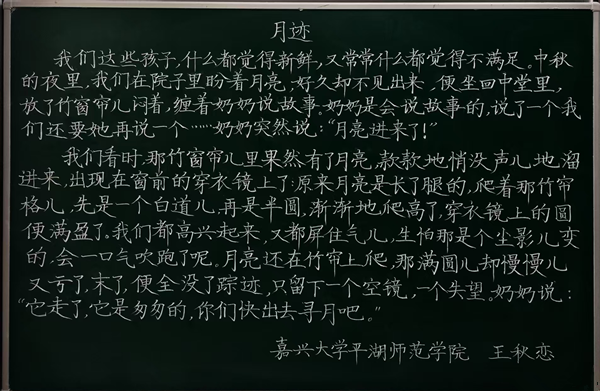 月迹
我们这些孩子,什么都觉得新鲜,又常常什么都觉得不满足。中秋
的夜里,我们在院子里盼着月亮,好久却不见出来,便坐回中堂里,
放了竹窗帘儿闷着,缠着奶奶说故事。奶奶是会说故事的,说了一个我
们还要她再说一个……奶奶突然说:“月亮进来了!”
我们看时,那竹窗帘儿里果然有了月亮,款款地悄没声儿地溜
进来,出现在窗前的穿衣镜上了:原来月亮是长了腿的,爬着那竹帘
格儿,先是一个白道儿,再是半圆,渐渐地爬高了,穿衣镜上的圆
便满盈了。我们都高兴起来,又都屏住气儿,生怕那是个尘影儿变
的,会一口气吹跑了呢。月亮还在竹帘上爬,那满圆儿却慢慢儿
又亏了,末了,便全没了踪迹,只留下一个空镜,一个失望。奶奶说:
“它走了,它是匆匆的,你们快出去寻月吧。”
嘉兴大学平湖师范学院 王秋恋